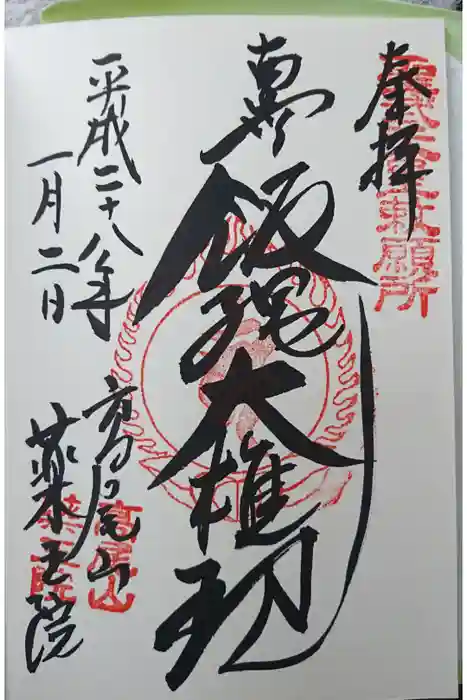 奉拝
飯縄大権現
平成二十八年
一月二日
高尾山
薬王院
高尾山
薬王院